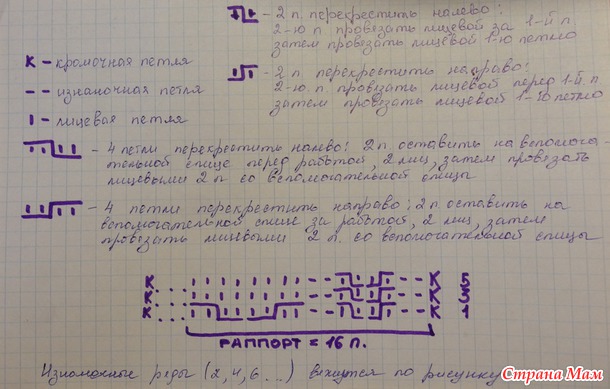 - 2 п. перекрестить налево:
2-ю п. провязать лицевой за 1-й п
затем провязать лицевой 1-ю петлю
К - кромочная петля
- 2 п. перекрестить направо:
2-ю п. провязать лицевой перед 1-й п.
затем провязать лицевой 1-ю петлю
- - изнаночная петля
ı - лицевая петля
- 4 петли перекрестить налево: 2 п оставить на вспомога-
тельной спице перед работой, 2 лиц, затем провязать
лицевыми 2 п со вспомогательной спицы
- 4 петли перекрестить направо: 2 п оставить на
вспомогательной спице за работой, 2 лиц, затем
провязать лицевыми 2 п. со вспомогательной спицы
К К 5
К К 3
К К 1
РАППОРТ = 16 П.
Изнаночные ряды (2, 4, 6 ...) вяжутся по рисунку
Страна Мам